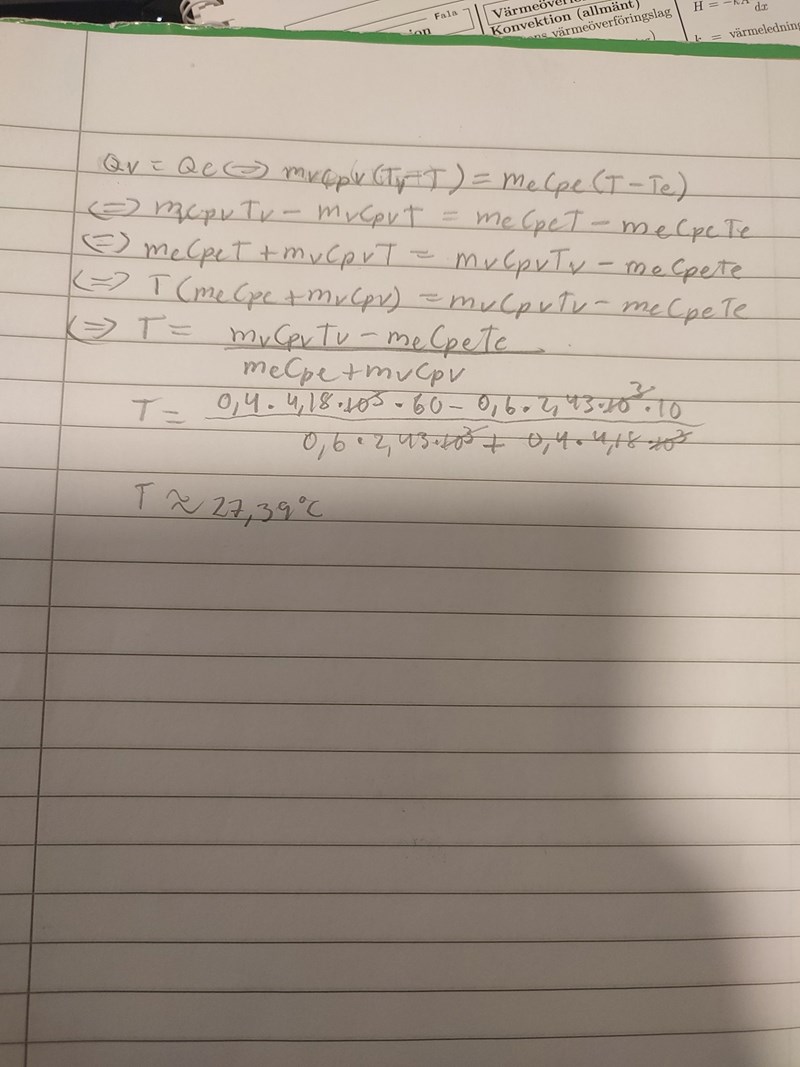 Fala
Värmeöver
Konvektion (allmänt)
värmeöverföringslag
H = -kA
dx
k = värmeledning
Qv = Qe <=> mvCpv(Tv-T) = meCpe(T-Te)
<=> mvCpvTv - mvCpvT = meCpeT - meCpeTe
<=> meCpeT + mvCpvT = mvCpvTv - meCpeTe
<=> T(meCpe + mvCpv) = mvCpvTv - meCpeTe
<=> T = mvCpvTv - meCpeTe
meCpe + mvCpv
T = 0,4 · 4,18·10³ · 60 - 0,6 · 2,43·10³ · 10
0,6 · 2,43·10³ + 0,4 · 4,18·10³
T ≈ 27,39°C